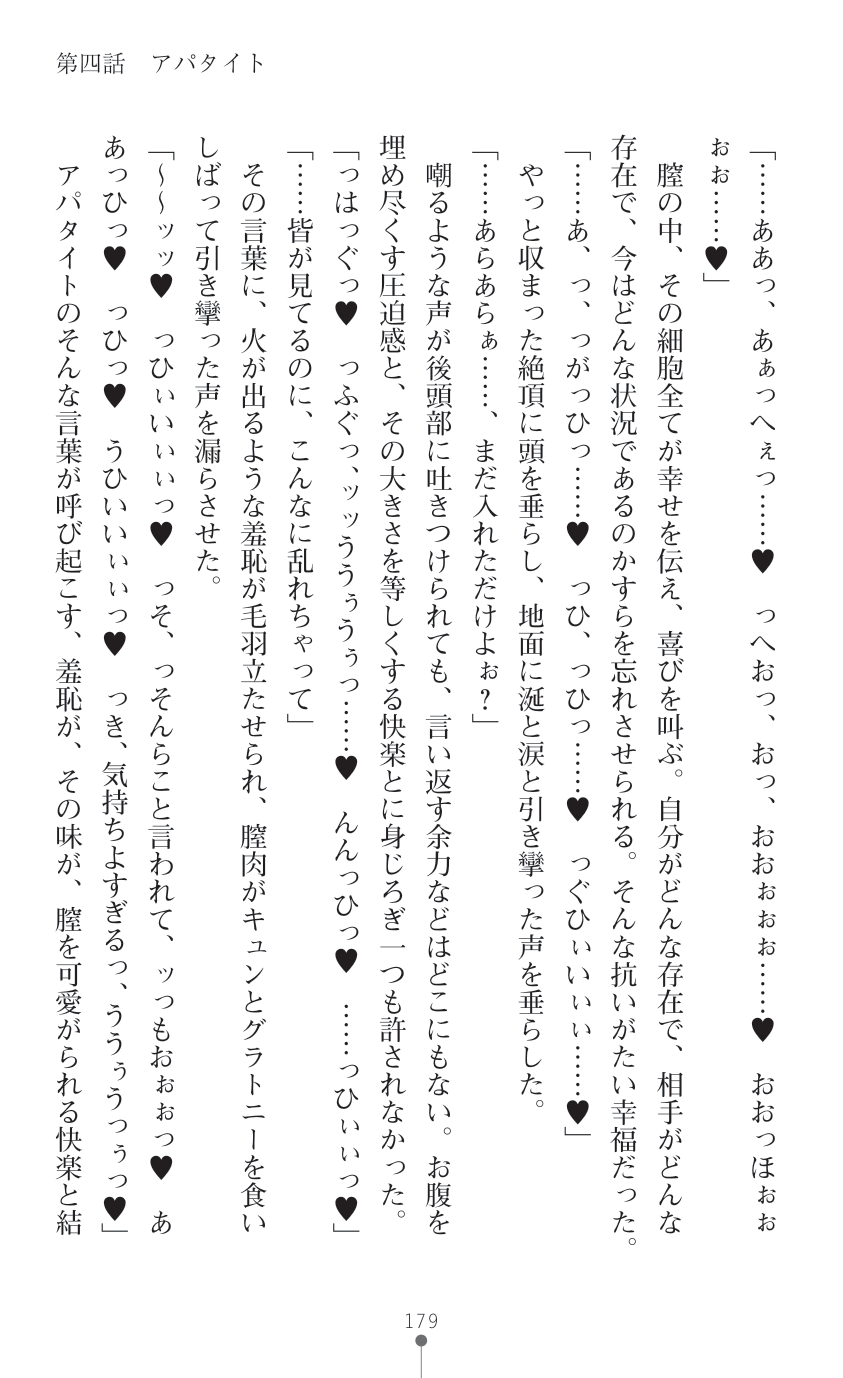 第四話　アパタイト
「……ああっ、あぁっへぇっ……♥　っへおっ、おっ、おおぉぉぉ……♥　おおっほぉぉ
ぉぉ……♥」
　膣の中、その細胞全てが幸せを伝え、喜びを叫ぶ。自分がどんな存在で、相手がどんな
存在で、今はどんな状況であるのかすらを忘れさせられる。そんな抗いがたい幸福だった。
「……あ、っ、っがっひっ……♥　っひ、っひっ……♥　っぐひぃいぃぃ……♥」
　やっと収まった絶頂に頭を垂らし、地面に涎と涙と引き攣った声を垂らした。
「……あらあらぁ……、まだ入れただけよぉ？」
　嘲るような声が後頭部に吐きつけられても、言い返す余力などはどこにもない。お腹を
埋め尽くす圧迫感と、その大きさを等しくする快楽とに身じろぎ一つも許されなかった。
「っはっぐっ♥　っふぐっ、ッッううぅうぅっ……♥　んんっひっ♥　……っひぃぃっ♥」
「……皆が見てるのに、こんなに乱れちゃって」
　その言葉に、火が出るような羞恥が毛羽立たせられ、膣肉がキュンとグラトニーを食い
しばって引き攣った声を漏らさせた。
「～～ッッ♥　っひぃいぃぃっ♥　っそ、っそんらこと言われて、ッっもおぉぉっ♥　あ
あっひっ♥　っひっ♥　うひいいぃぃっ♥　っき、気持ちよすぎるっ、ううぅうっぅっ♥」
　アパタイトのそんな言葉が呼び起こす、羞恥が、その味が、膣を可愛がられる快楽と結
179